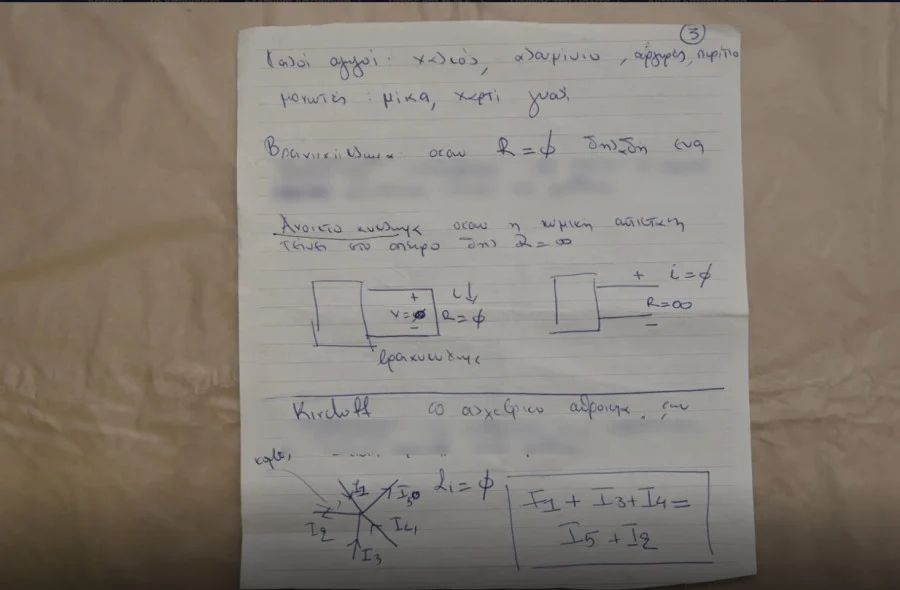 3
Καλοί αγωγοί: χαλκός, αλουμίνιο, άργυρος,
μονωτές: μίκα, χαρτί γυαλί
Βραχυκύκλωμα όταν R = φ δηλαδή ένα
Ανοικτό κύκλωμα όταν η ωμική αντίσταση
τείνει στο άπειρο δηλ R = ∞
+ i
V = φ R = φ
−
βραχυκύκλωμα
+ i = φ
R = ∞
−
Kirchoff το αλγεβρικό άθροισμα των
κόμβος
I1 I5 Σi = φ
I2 I4
I3
I1 + I3 + I4 =
I5 + I2